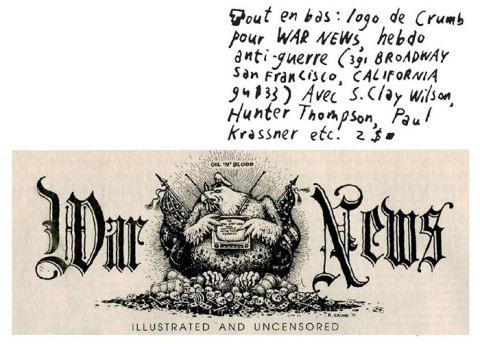 Tout en bas: logo de Crumb
pour WAR NEWS, hebdo
anti-guerre (391 BROADWAY
San Francisco, CALIFORNIA
94133) Avec S. Clay Wilson,
Hunter Thompson, Paul
Krassner etc. 2 $.
OIL 'N' BLOOD
War News
R. CRUMB
ILLUSTRATED AND UNCENSORED